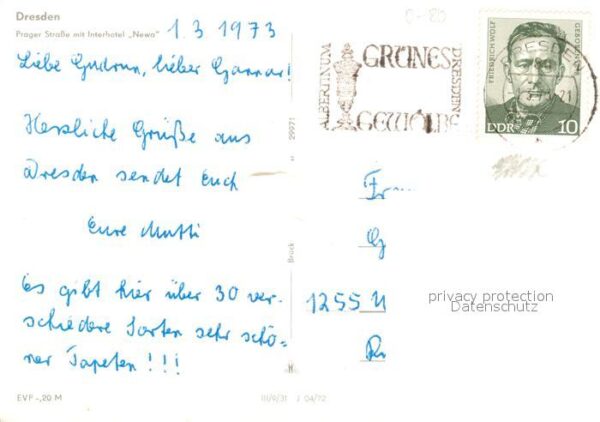 Dresden
Prager Straße mit Interhotel „Newa"
1.3 1973
Liebe Gudrun, lieber Gunnar!
Herzliche Grüße aus
Dresden sendet Euch
Eure Mutti
Es gibt hier über 30 ver-
schiedene Sorten sehr schö-
ner Tapeten!!!
EVP -,20 M
III/9/31 J 04/72
29971
Druck
ALBERTINUM
GRÜNES
GEWÖLBE
DRESDEN
FRIEDRICH WOLF
DDR 10
Fr
G
1255
privacy protection
Datenschutz